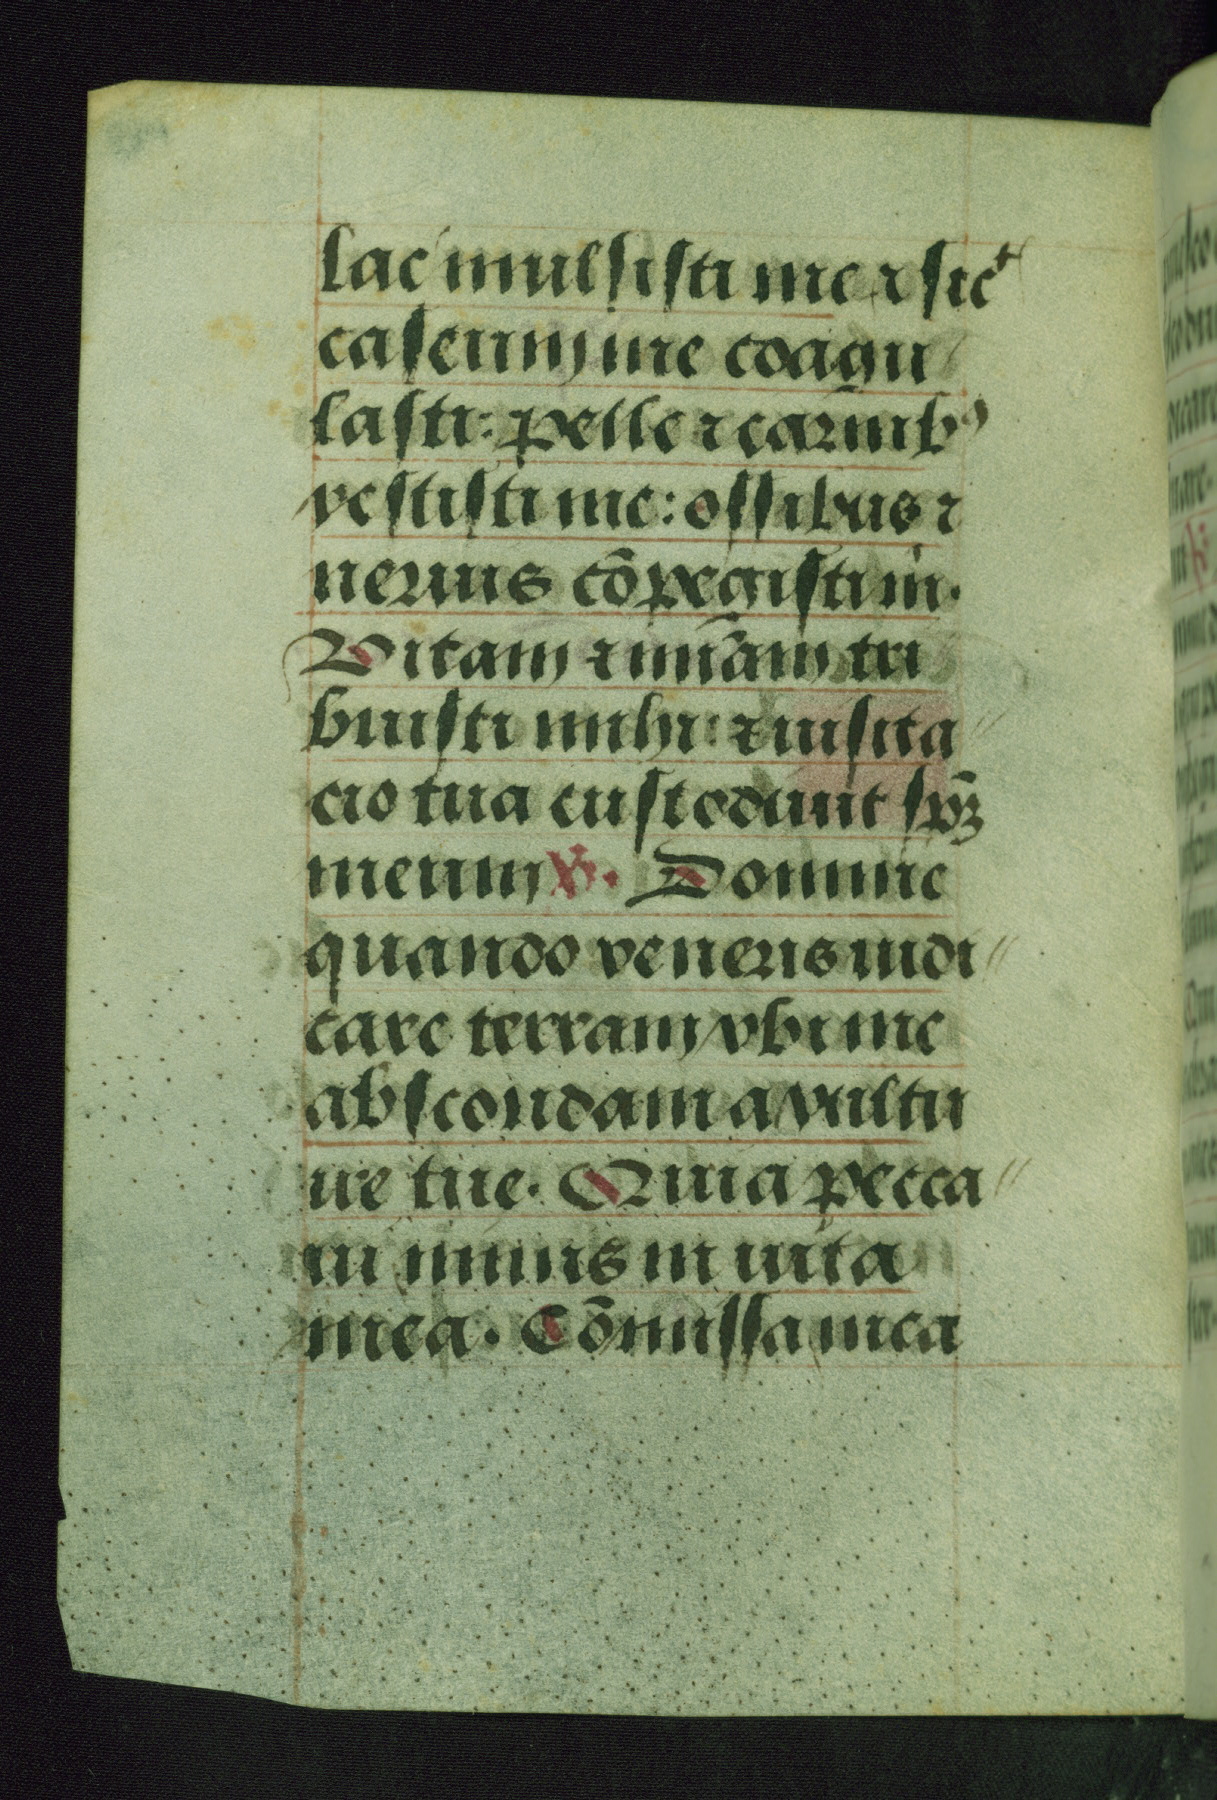 lac mulsisti me ⁊ sicᵗ
caseum me coagu
lasti: pelle ⁊ carnibꝰ
vestisti me: ossibus ⁊
neruis cōpegisti m̄.
Vitam ⁊ mīam tri
buisti mihi: ⁊ uisita//
cio tua custodiuit sp̄ꝫ
meum ℣. Domine
quando veneris iudi//
care terram vbi me
abscondam a vultu
ire tue. Quia pecca//
ui nimis in uita
mea. Cōmissa mea